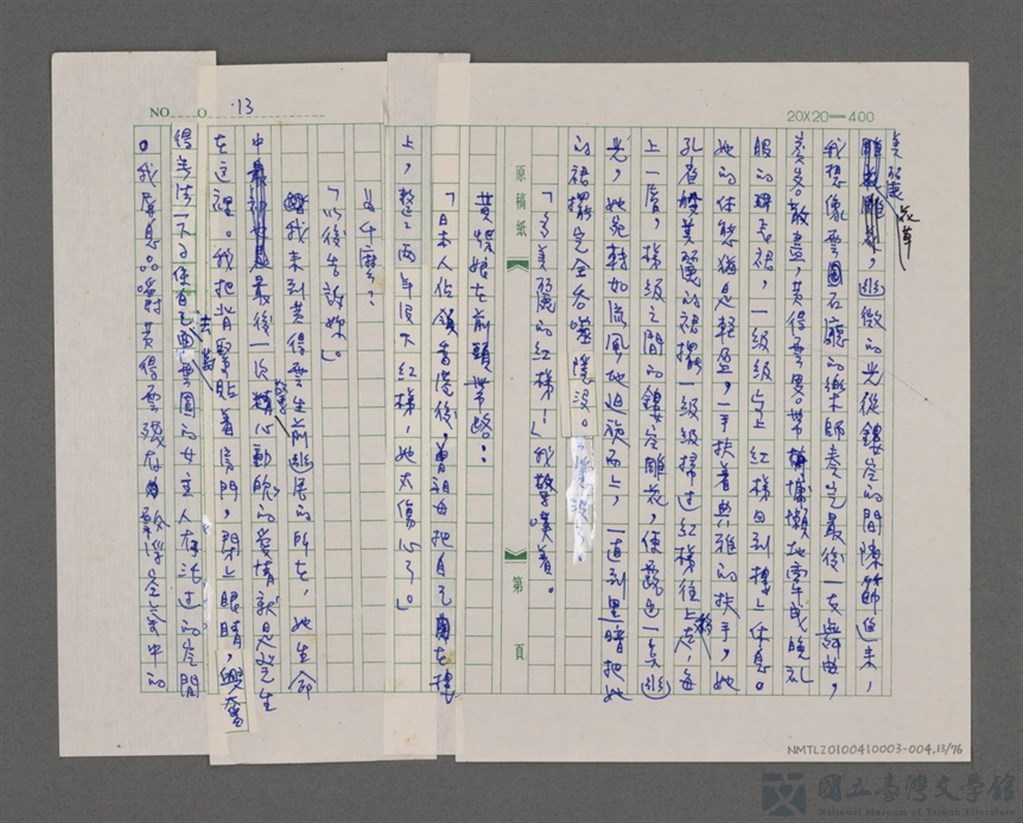 NO. O. 13
20X20=400
美麗
花草
，幽微的光從鏤空的間隙篩進來，
我想像雲園石廳的樂師奏完最後一支舞曲，
賓客散盡，黃得雲曼帶慵懶地牽曳晚禮
服的裙裾，一級級步上紅梯回到樓上休息。
她的体態猶是輕盈，一手扶着典雅的扶手，她
孔雀般美麗的裙擺一級級掃过紅梯往上移，每
上一層，梯級之間的鏤空雕花，便露出一奌幽
光，她宛轉如流風地迴旋而上，一直到黑暗把她
的裙擺完全吞噬隱沒。
「多美麗的紅梯！」我驚嘆着。
原稿紙
第 頁
黃蝶娘在前頭帶路：
「日本人佔領香港後，曾祖母把自己關在樓
上，整整兩年沒下紅梯，她太傷心了。」
為什麼？
「以後告訴妳。」
我來到黃得雲生前幽居的所在，她生命
中最後一次驚心動魄的愛情就是發生
在這裡。我把背緊貼着房門，閉上眼睛，興奮
得無法一下子使自己去看雲園的女主人存活过的空間
。我屏息品嚐對黃得雲殘存的飄浮空氣中的
NMTL20100410003-004,13/76
國立臺灣文學館
National Museum of Taiwan Literature